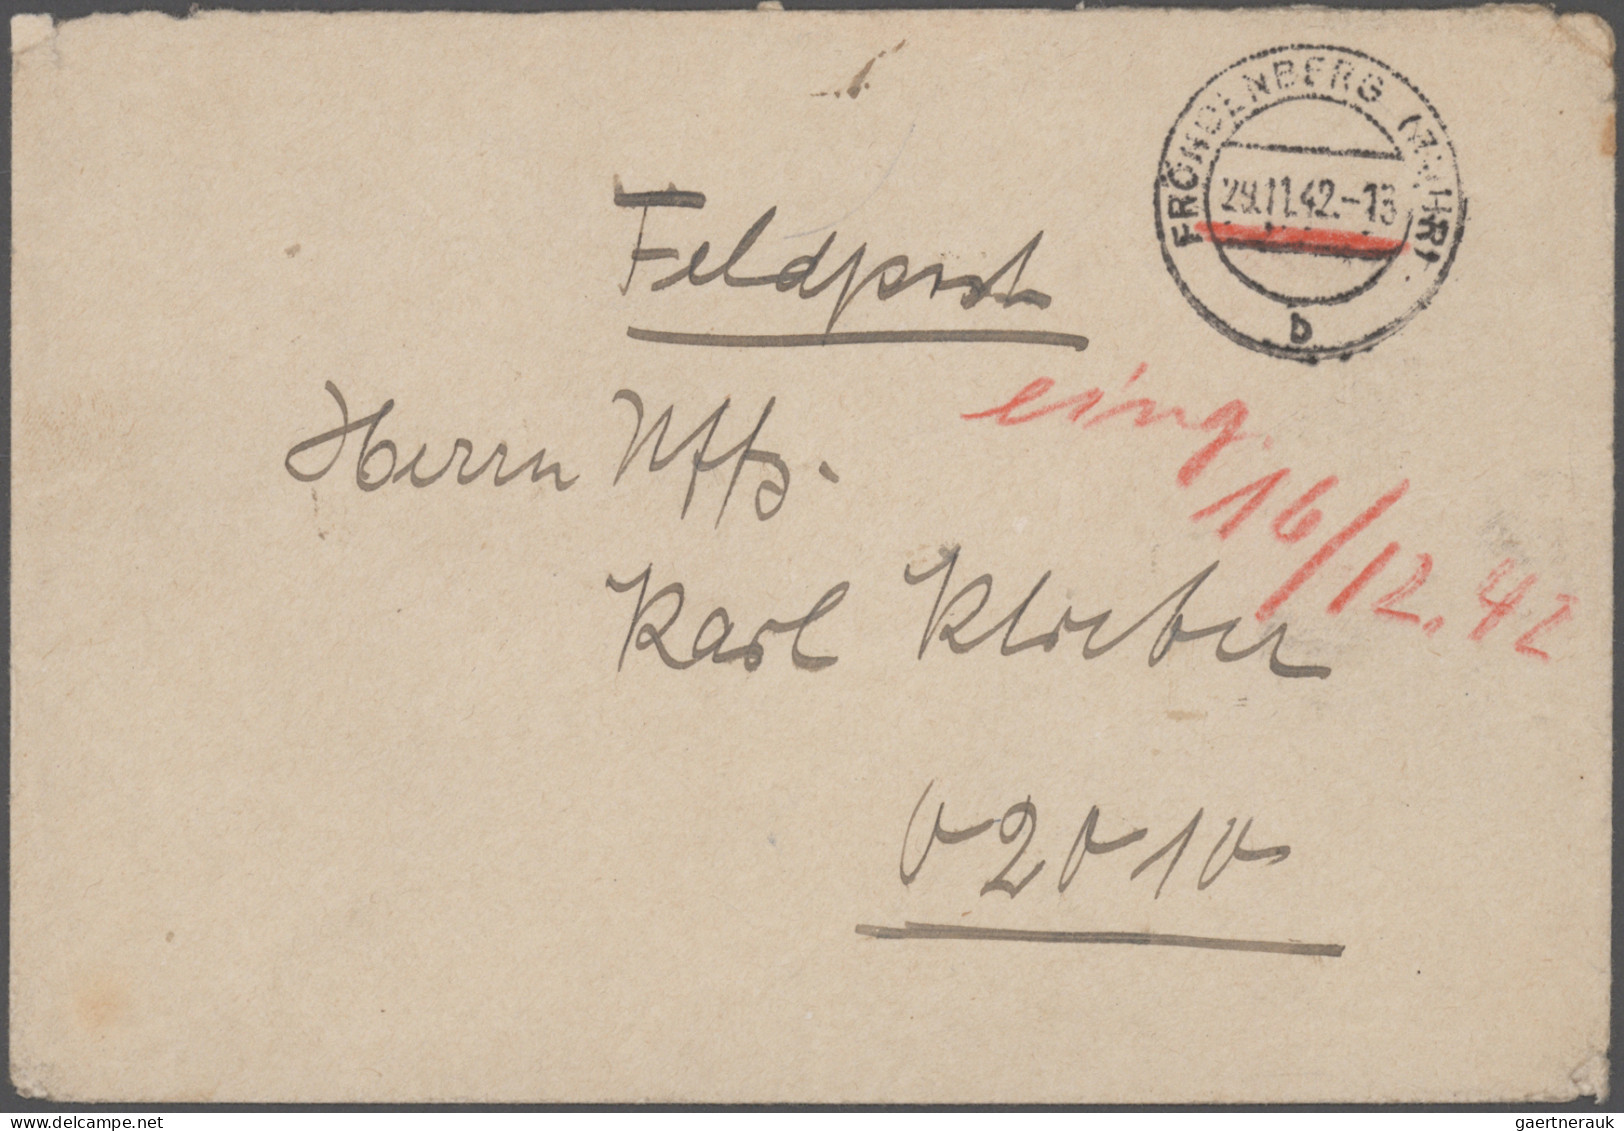 FRÖNDENBERG (RUHR)
29.11.42.-13
b
Feldpost
eing.
16/12.42
Herrn Uffz.
Karl Klieber
02010
gaertnerauk